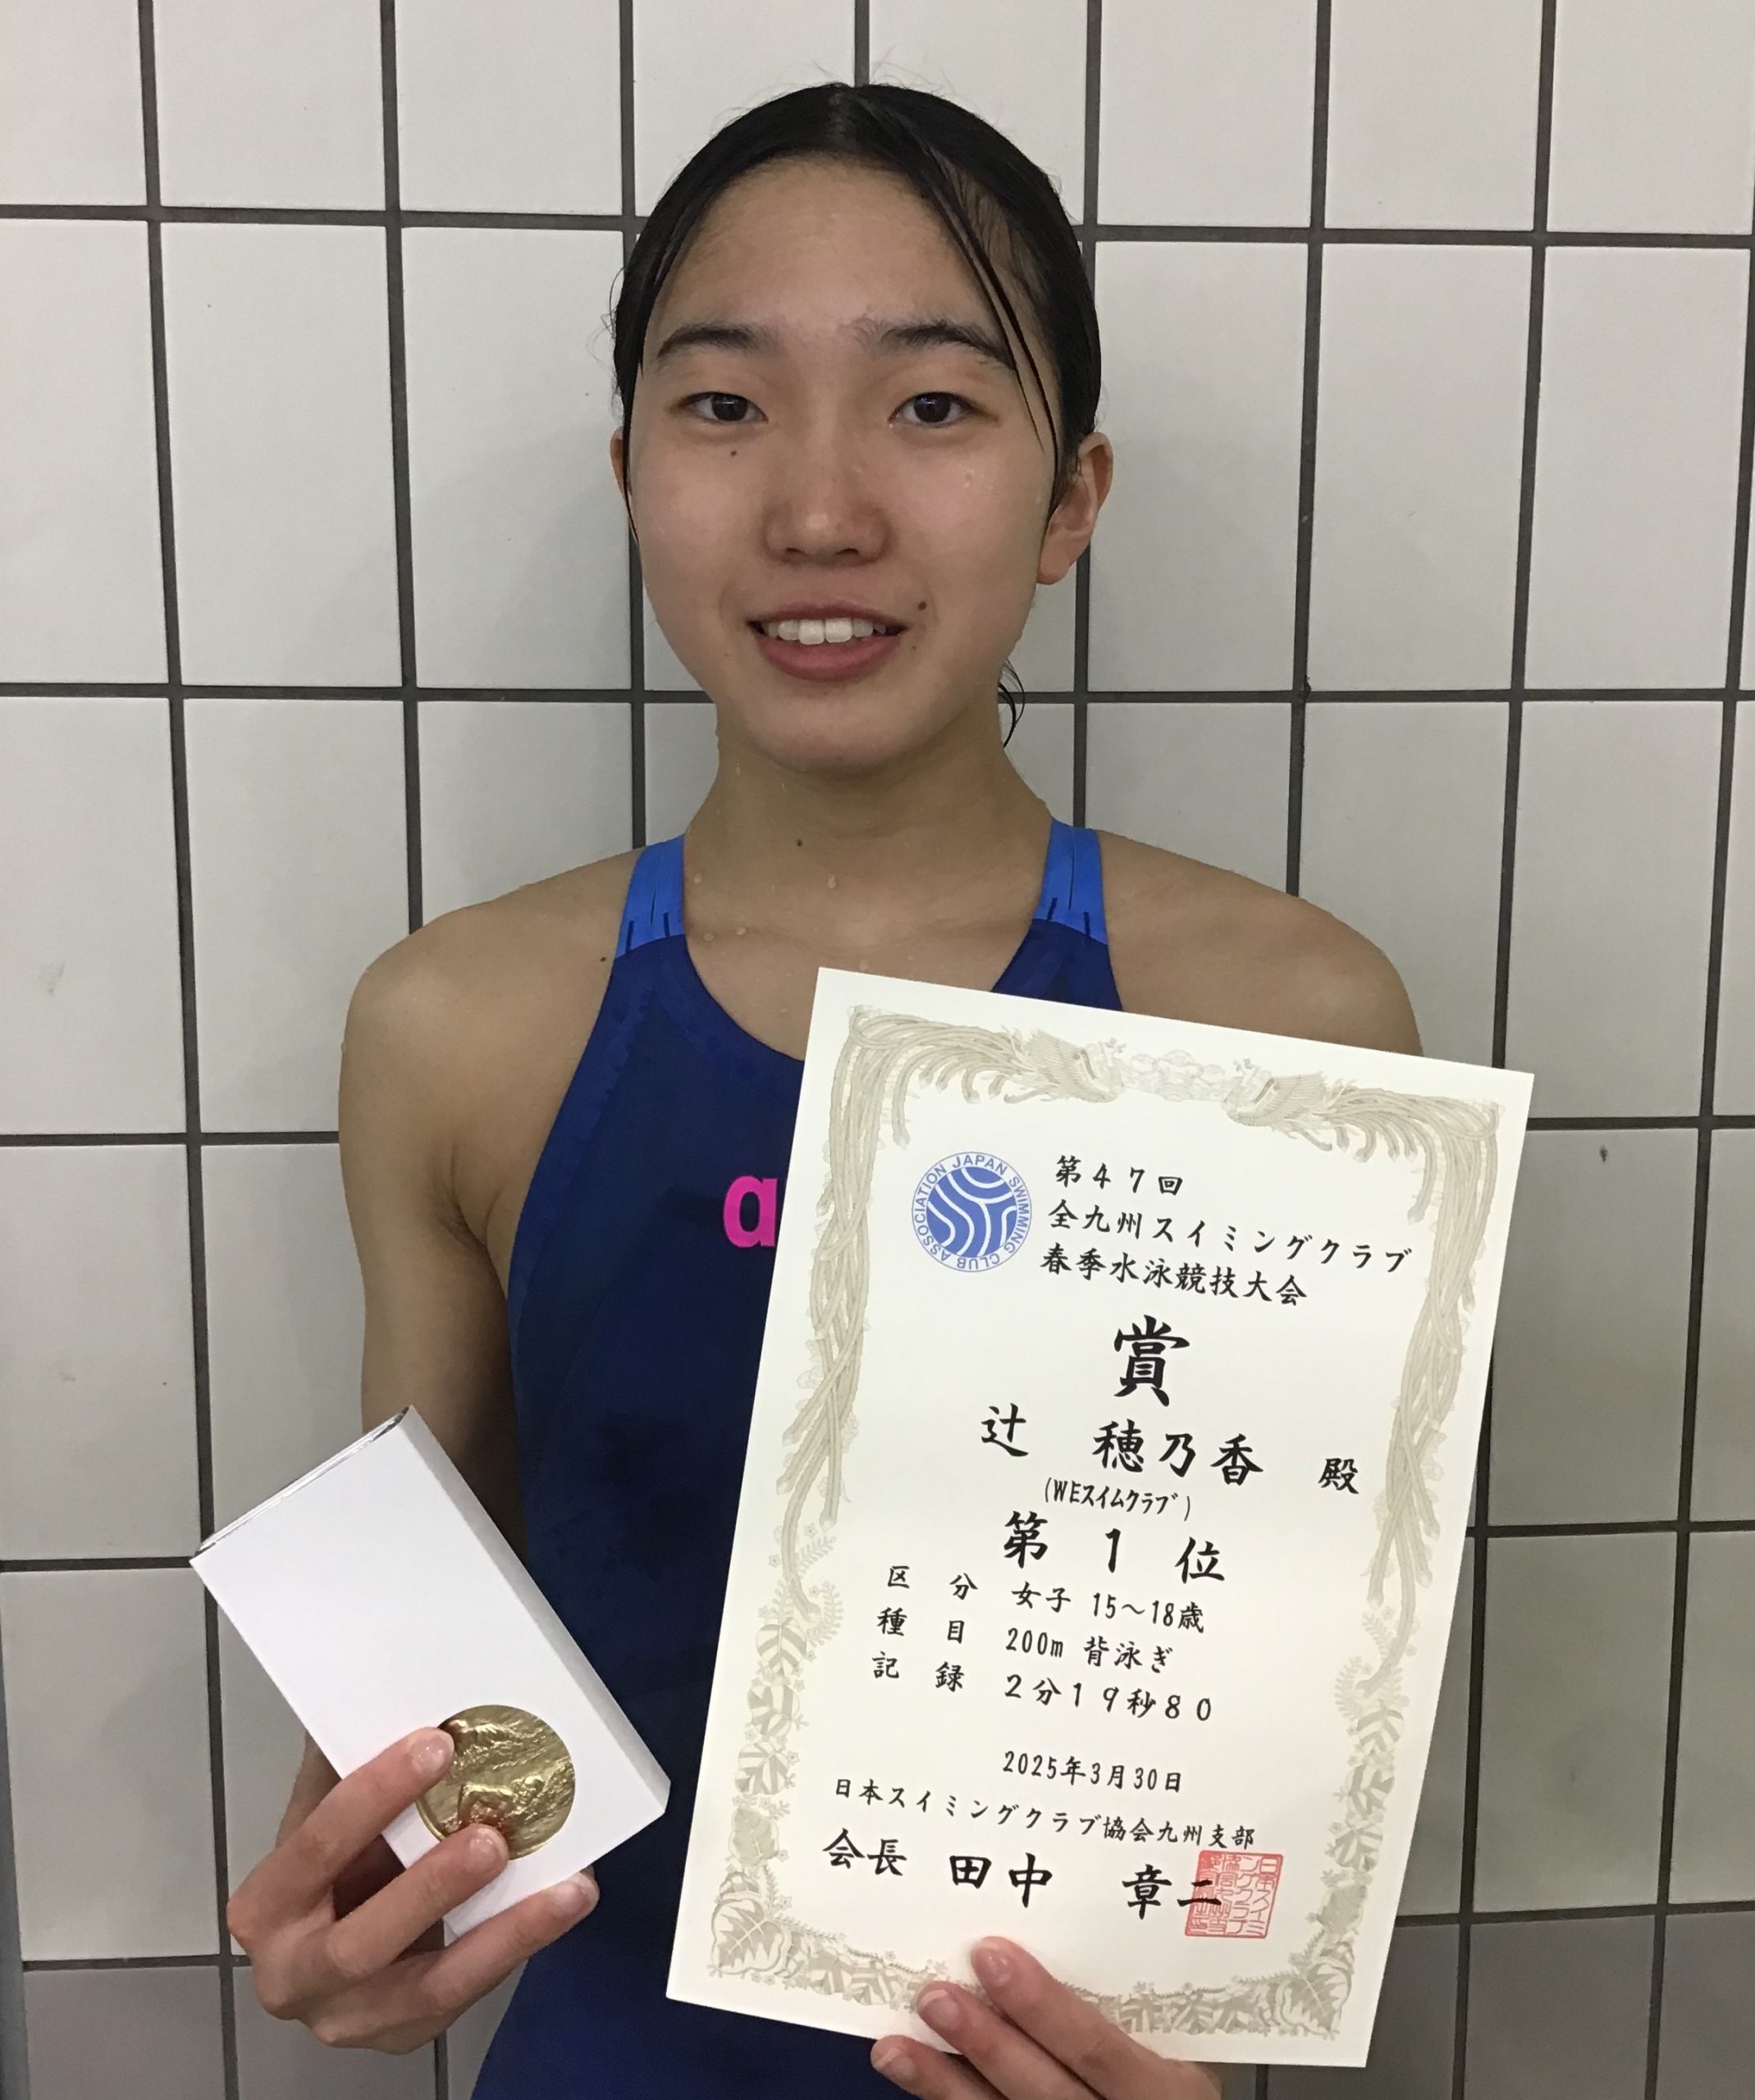 a
JAPAN SWIMMING CLUB ASSOCIATION
第47回
全九州スイミングクラブ
春季水泳競技大会
賞
辻 穂乃香 殿
(WEスイムクラブ)
第 1 位
区 分 女子 15～18歳
種 目 200m 背泳ぎ
記 録 2分19秒80
2025年3月30日
日本スイミングクラブ協会九州支部
会長 田中 章二